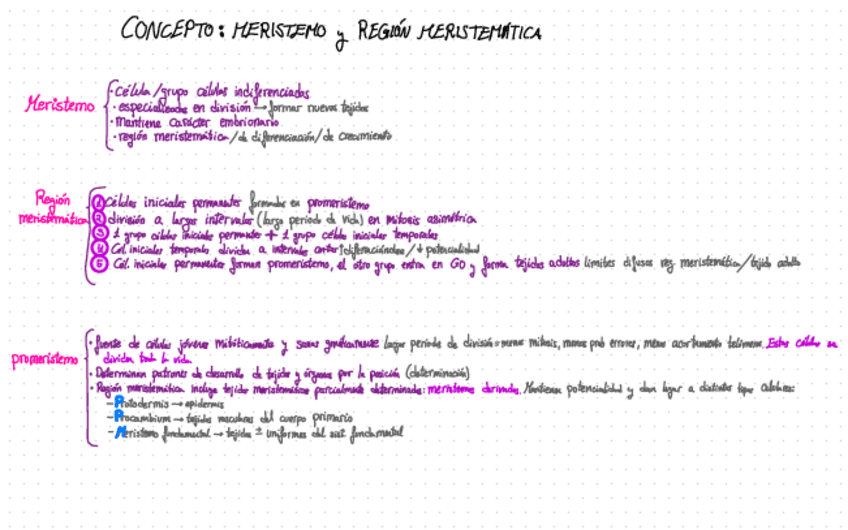 CONCEPTO: MERISTEMO y REGIÓN MERISTEMÁTICA
Meristemo
· Célula/grupo células indiferenciadas
· especializadas en división → formar nuevos tejidos
· Mantiene carácter embrionario
· región meristemática/de diferenciación/de crecimiento
Región meristemática
① Células iniciales permanentes formadas en promeristemo
② división a largos intervalos (largo periodo de vida) en mitosis asimétrica
③ 1 grupo células iniciales permanentes + 1 grupo células iniciales temporales
④ Cel. iniciales temporales dividen a intervalos cortos ↑diferenciándose/↓ potencialidad
⑤ Cél. iniciales permanentes forman promeristemo, el otro grupo entra en G0 y forma tejidos adultos límites difusos reg. meristemática/tejido adulto
promeristemo
· fuente de células jóvenes mitóticamente y sanas genéticamente largos periodos de división = menor mitosis, menor prob errores, menor acortamiento telómeros. Estas células se
dividen toda la vida
· Determinan patrones de desarrollo de tejidos y órganos por la posición (determinación)
· Región meristemática incluye tejidos meristemáticos parcialmente determinados: meristemos derivados. Mantienen potencialidad y dan lugar a distintos tipos celulares:
- Protodermis → epidermis
- Procambium → tejidos vasculares del cuerpo primario
- Meristemo fundamental → tejidos ± uniformes del sist. fundamental